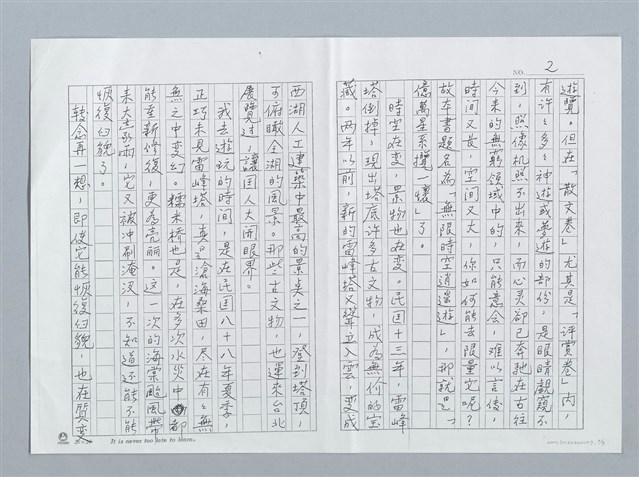 NO. 2
遊覽。但在「散文卷」尤其是「評賞卷」內，
有許之多之神遊或夢遊的部份，是眼睛觀窺不
到，照像机照不出來，而心灵卻已奔馳在古往
今來的無窮領域中的，只能意会，难以言傳，
時間又長，空间又大，你如何能去限量它呢？
故本書題名為「無限時空逍遙遊」，那就是「
億萬星系攬一懷」了。
時空在变，景物也在变。民国十三年，雷峰
塔倒掉，現出塔底许多古文物，成為無价的宝
藏。两年以前，新的雷峰塔又聳立入雲，变成
西湖人工建築中最高的景奌之一，登到塔頂，
可俯瞰全湖的風景。那些古文物，也運來台北
展覽过，讓国人大開眼界。
我去遊玩的時间，是在民国八十八年夏季，
正巧未見雷峰塔，真是滄海桑田，尽在有之無
無之中变幻。糯米桥也是，在多次水災中都
能至新修復，更為亮丽。这一次的海棠颱風帶
來大豪雨，它又被冲刷淹没，不知道还能不能
恢復旧貌了。
轉念再一想，即使它能恢復旧貌，也在質变
It is never too late to learn.